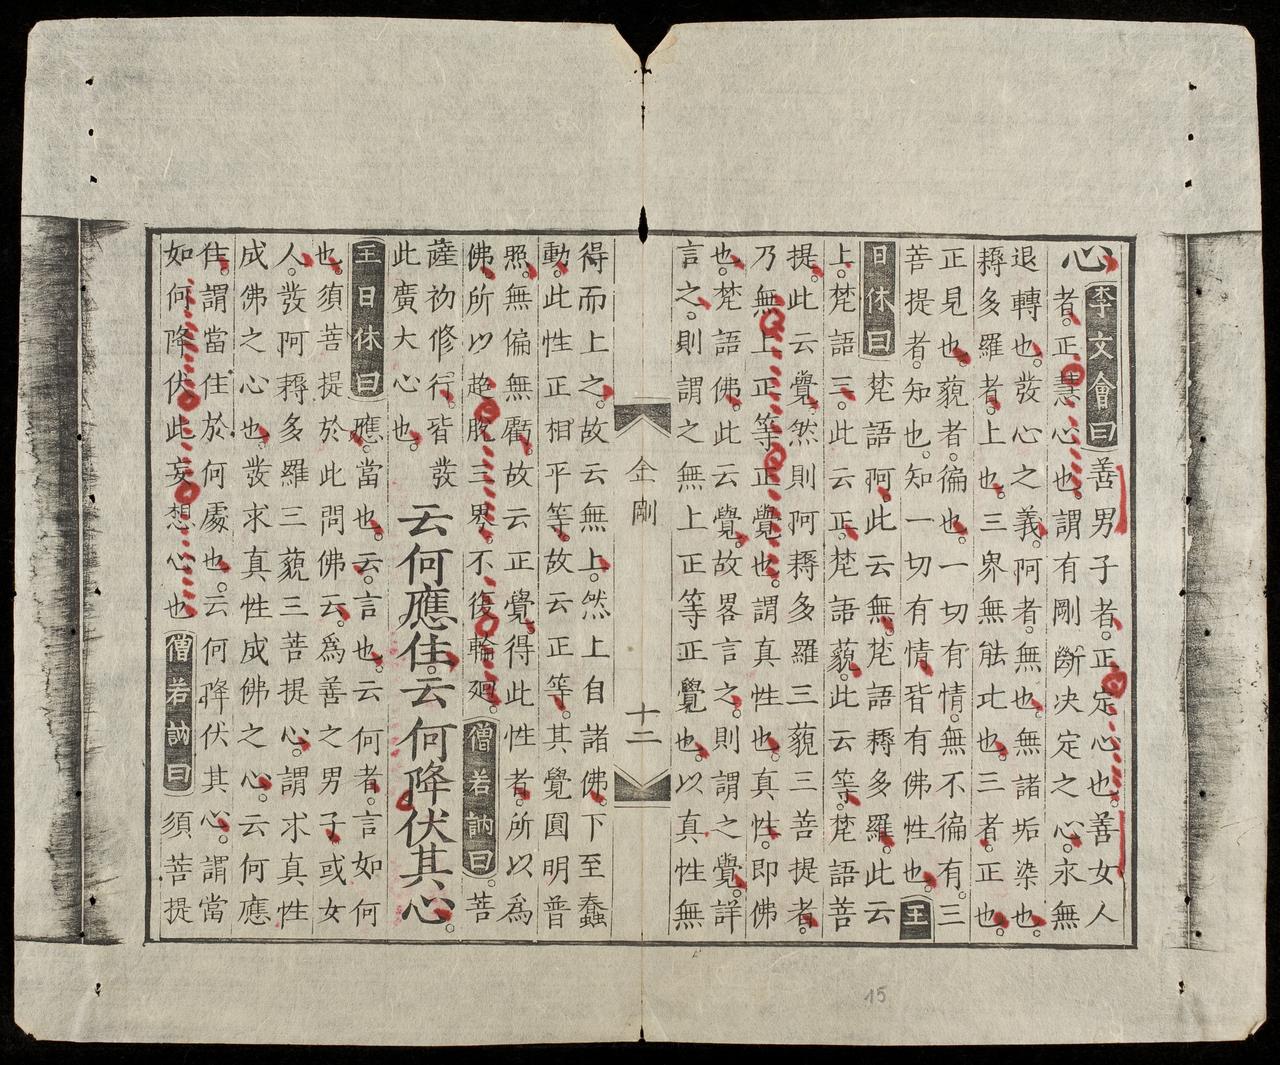 心李文會曰善男子者。正定心也。善女人
者。正慧心也。謂有剛斷决定之心。永無
退轉也。發心之義。阿者。無也。無諸垢染也。
耨多羅者。上也。三界無能比也。三者。正也。
正見也。藐者。徧也。一切有情。無不徧有。三
菩提者。知也。知一切有情。皆有佛性也。王
日休曰梵語阿。此云無。梵語耨多羅。此云
上。梵語三。此云正。梵語藐。此云等。梵語菩
提。此云覺。然則阿耨多羅三藐三菩提者。
乃無上正等正覺也。謂真性也。真性。即佛
也。梵語佛。此云覺。故畧言之。則謂之覺。詳
言之。則謂之無上正等正覺也。以真性無
金剛
十二
得而上之。故云無上。然上自諸佛。下至蠢
動。此性正相平等。故云正等。其覺圓明普
照。無偏無虧。故云正覺。得此性者。所以爲
佛。所以超脫三界。不復輪廻。僧若訥曰。菩
薩初修行。皆發
此廣大心也。
云何應住。云何降伏其心。
王日休曰應。當也。云。言也。云何者。言如何
也。須菩提於此問佛云。爲善之男子。或女
人。發阿耨多羅三藐三菩提心。謂求真性
成佛之心也。發求真性成佛之心。云何應
住。謂當住於何處也。云何降伏其心。謂當
如何降伏此妄想心也僧若訥曰須菩提
15